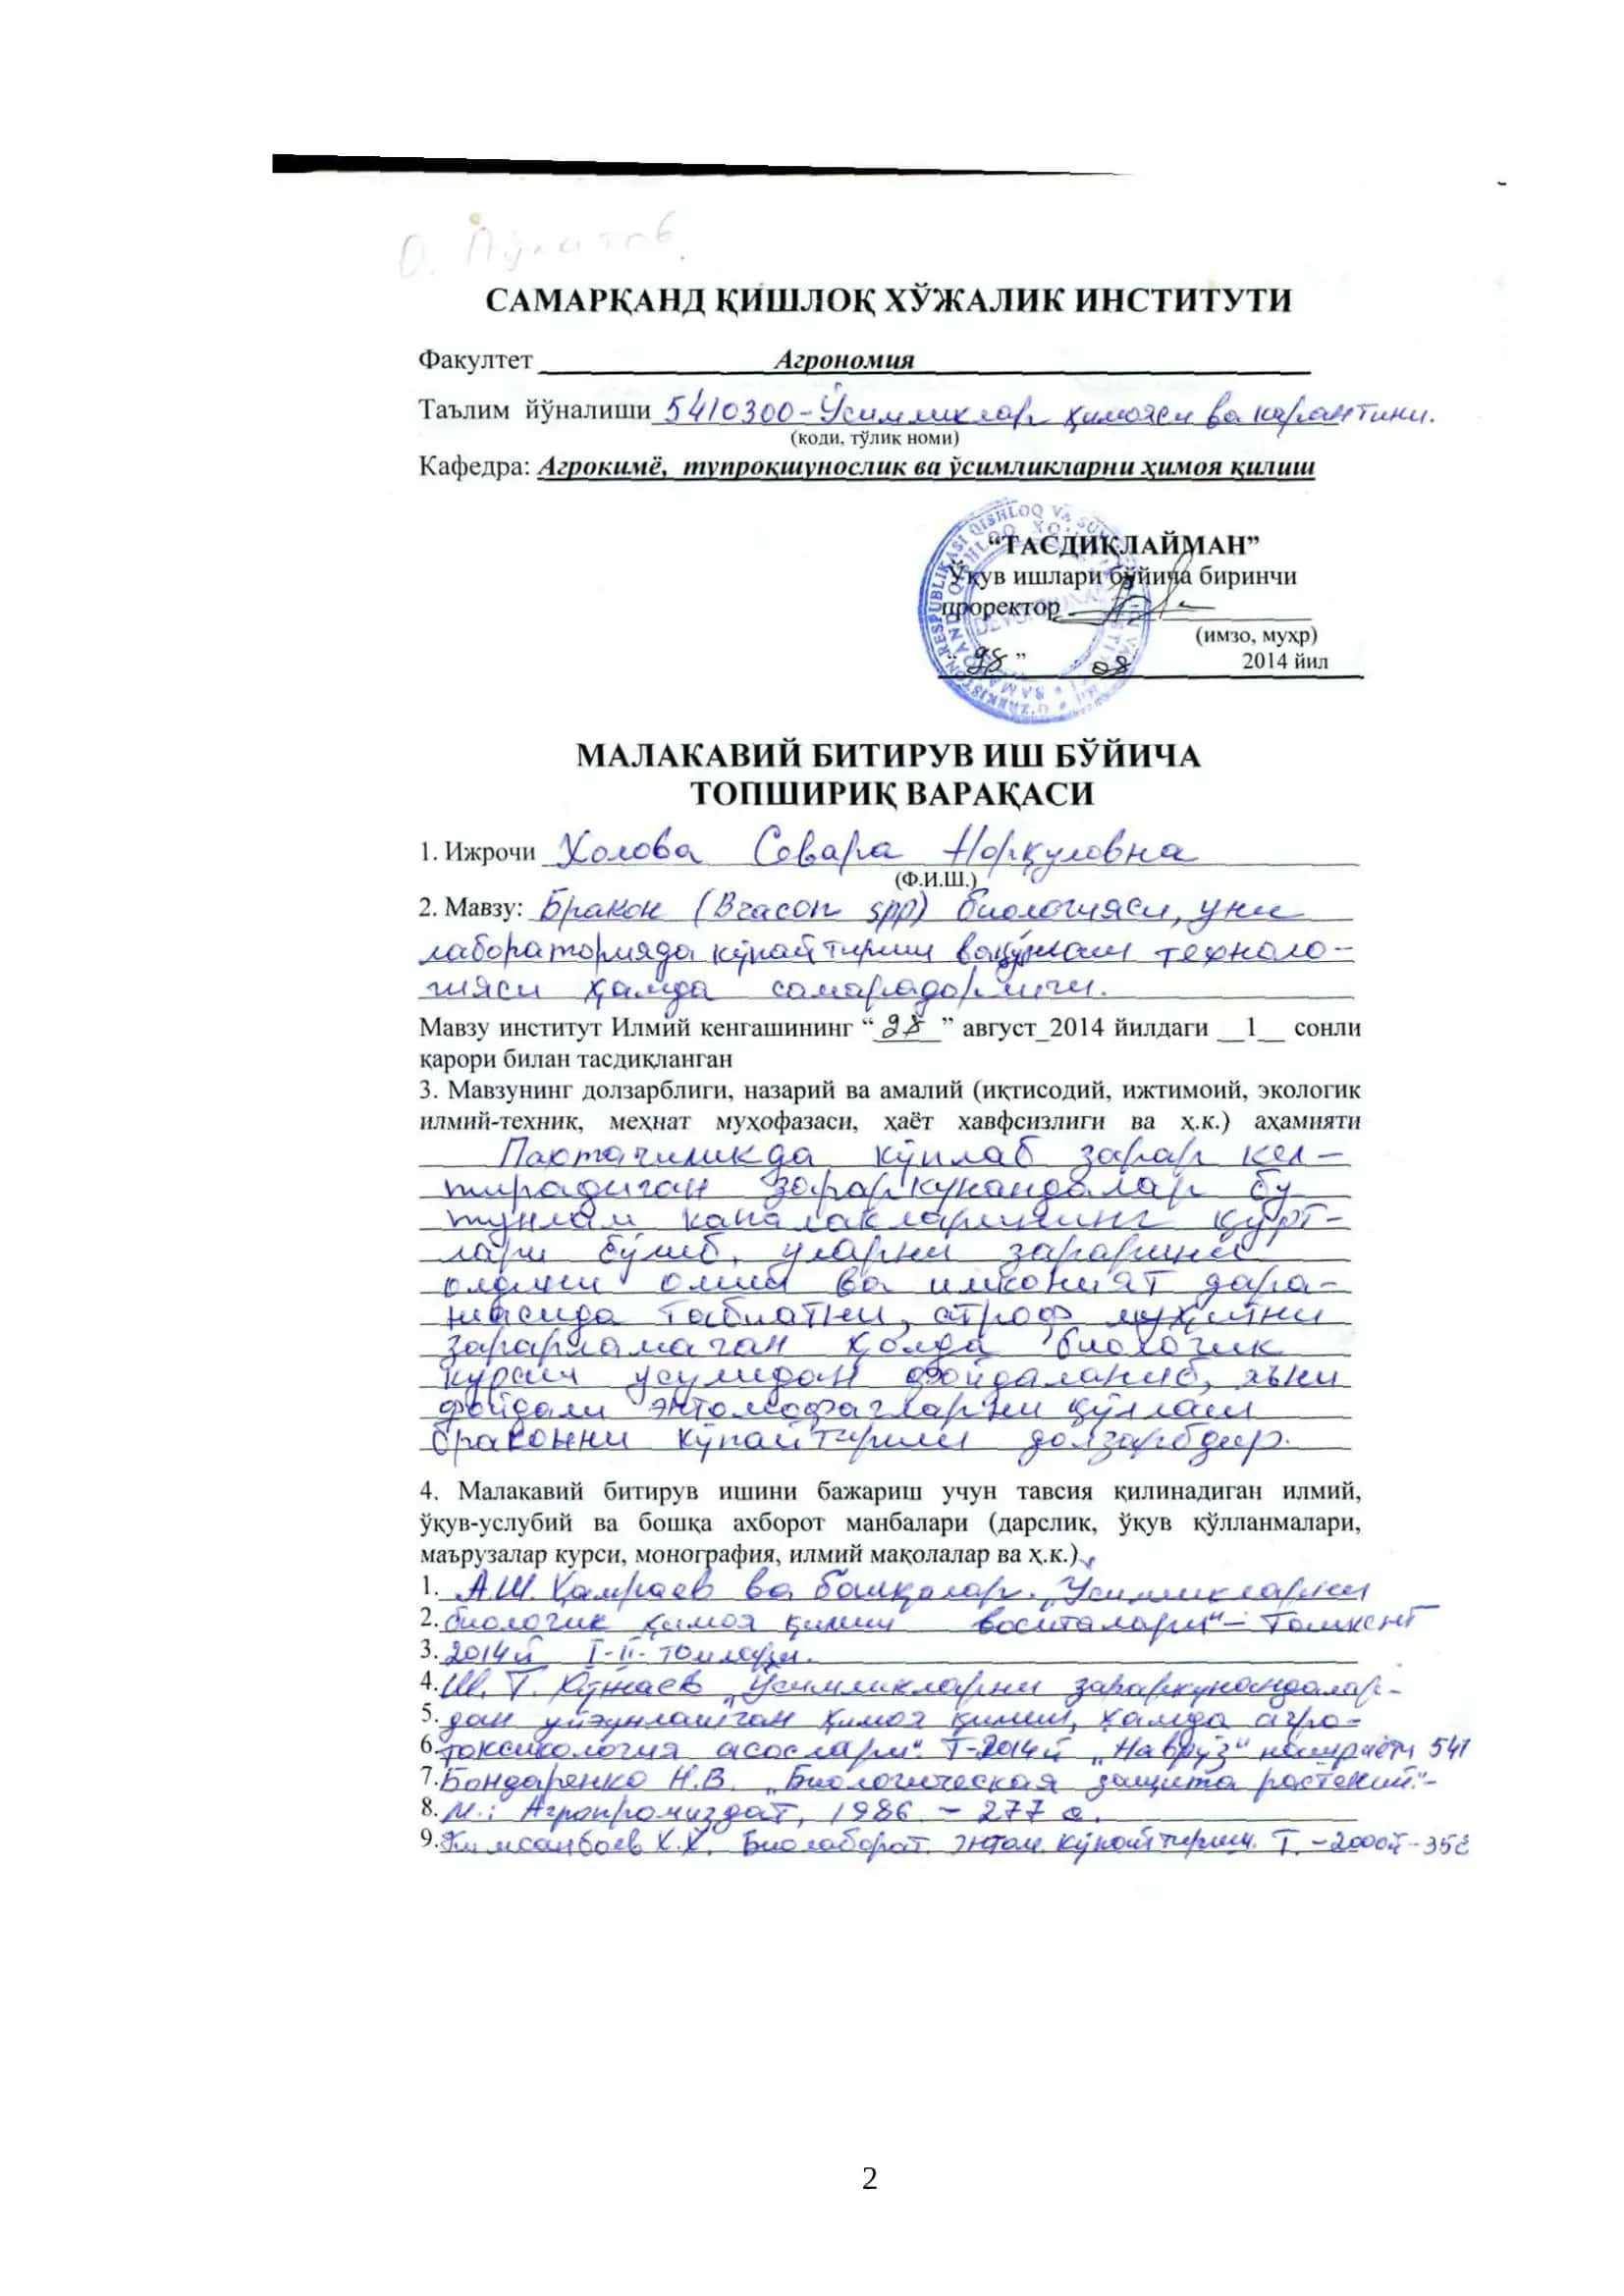 О. Пўлатов.
САМАРҚАНД ҚИШЛОҚ ХЎЖАЛИК ИНСТИТУТИ
Факултет Агрономия
Таълим йўналиши 5410300-Ўсимликлар ҳимояси ва карантини.
(коди, тўлиқ номи)
Кафедра: Агрокимё, тупроқшунослик ва ўсимликларни ҳимоя қилиш
“ТАСДИҚЛАЙМАН”
Ўқув ишлари бўйича биринчи
проректор
(имзо, муҳр)
“ 28 ” 08 2014 йил
МАЛАКАВИЙ БИТИРУВ ИШ БЎЙИЧА
ТОПШИРИҚ ВАРАҚАСИ
1. Ижрочи Холова Севара Норқуловна
(Ф.И.Ш.)
2. Мавзу: Бракон (Bracon spp) биологияси, уни
лабораторияда кўпайтириш ва қўллаш техноло-
гияси ҳамда самарадорлиги.
Мавзу институт Илмий кенгашининг “ 28 ” август_2014 йилдаги __1__ сонли
қарори билан тасдиқланган
3. Мавзунинг долзарблиги, назарий ва амалий (иқтисодий, ижтимоий, экологик
илмий-техник, меҳнат муҳофазаси, ҳаёт хавфсизлиги ва ҳ.к.) аҳамияти
Пахтачиликда кўплаб зарар кел-
тирадиган зараркунандалар бу
тунлам капалакларининг қурт-
лари бўлиб, уларни зарарини
олдини олиш ва имконият дара-
жасида табиатни, атроф муҳитни
зарарламаган ҳолда биологик
кураш усулидан фойдаланиб, яъни
фойдали энтомофагларни қўллаш
браконни кўпайтириш долзарбдир.
4. Малакавий битирув ишини бажариш учун тавсия қилинадиган илмий,
ўқув-услубий ва бошқа ахборот манбалари (дарслик, ўқув қўлланмалари,
маърузалар курси, монография, илмий мақолалар ва ҳ.к.)
1. А.Ш. Ҳамраев ва бошқалар. „Ўсимликларни
2. биологик ҳимоя қилиш воситалари“ – Тошкент
3. 2014й I-II- томлари.
4. Ш. Т. Хўжаев „Ўсимликларни зараркунандалар-
5. дан уйғунлашган ҳимоя қилиш, ҳамда агро-
6. токсикология асослари“. Т-2014й „Наврўз“ нашриёти 541
7. Бондаренко Н.В. „Биологическая защита растений“-
8. М.: Агропромиздат, 1986 – 277 с.
9. Кимсанбоев Х.Х. Биолаборат. энтом. кўпайтириш. Т. – 2000й-35б
2